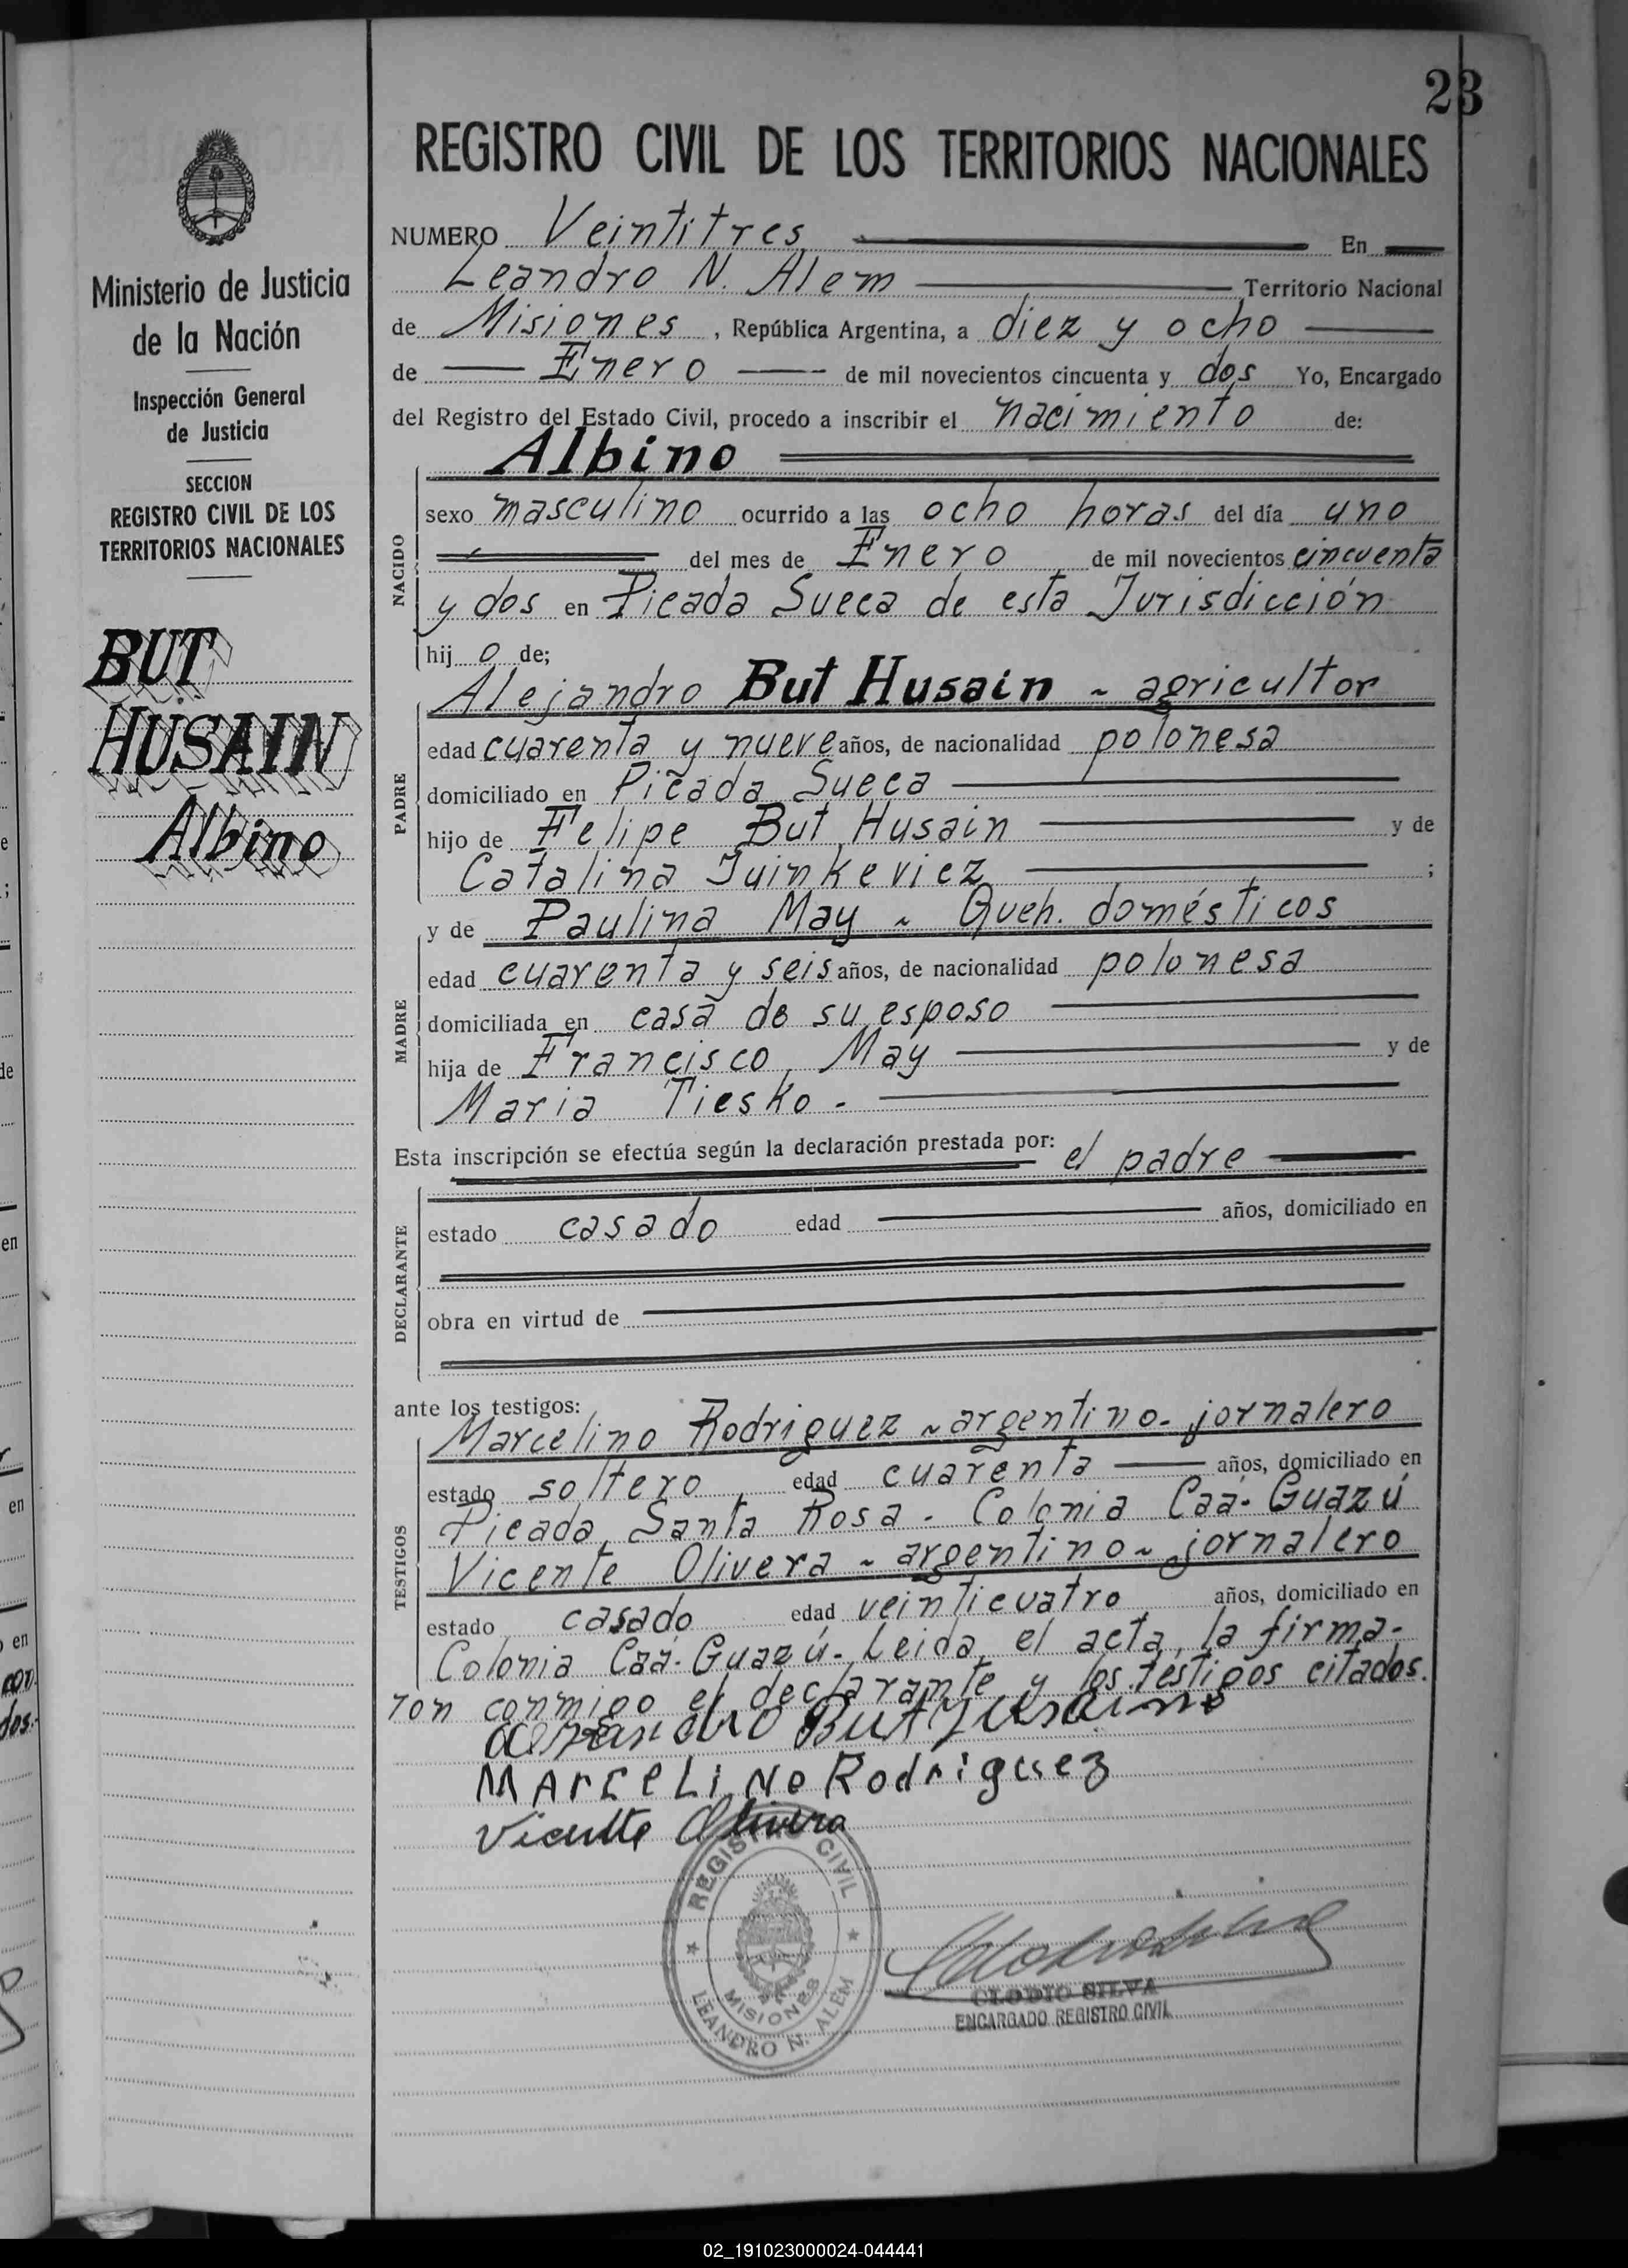 23
Ministerio de Justicia
de la Nación
Inspección General
de Justicia
SECCION
REGISTRO CIVIL DE LOS
TERRITORIOS NACIONALES
BUT
HUSAIN
Albino
REGISTRO CIVIL DE LOS TERRITORIOS NACIONALES
NUMERO Veintitres En
Leandro N. Alem Territorio Nacional
de Misiones, República Argentina, a diez y ocho
de Enero de mil novecientos cincuenta y dos Yo, Encargado
del Registro del Estado Civil, procedo a inscribir el nacimiento de:
Albino
NACIDO
sexo masculino ocurrido a las ocho horas del día uno
del mes de Enero de mil novecientos cincuenta
y dos en Picada Sueca de esta Jurisdicción
hijo de;
Alejandro But Husain ~ agricultor
PADRE
edad cuarenta y nueve años, de nacionalidad polonesa
domiciliado en Picada Sueca
hijo de Felipe But Husain y de
Catalina Juinkeviez ;
y de Paulina May ~ Queh. domésticos
MADRE
edad cuarenta y seis años, de nacionalidad polonesa
domiciliada en casa de su esposo
hija de Francisco May y de
Maria Tiesko.-
Esta inscripción se efectúa según la declaración prestada por: el padre
DECLARANTE
estado casado edad años, domiciliado en
obra en virtud de
ante los testigos:
TESTIGOS
Marcelino Rodriguez ~ argentino - jornalero
estado soltero edad cuarenta años, domiciliado en
Picada Santa Rosa - Colonia Caá-Guazú
Vicente Olivera ~ argentino ~ jornalero
estado casado edad veinticuatro años, domiciliado en
Colonia Caá-Guazú - Leida el acta, la firma-
ron conmigo el declarante y los testigos citados.
MArceLiNo Rodriguez
Vicente Olivera
REGISTRO CIVIL
MISIONES
LEANDRO N. ALEM
CLODIO SILVA
ENCARGADO REGISTRO CIVIL
02_191023000024-044441